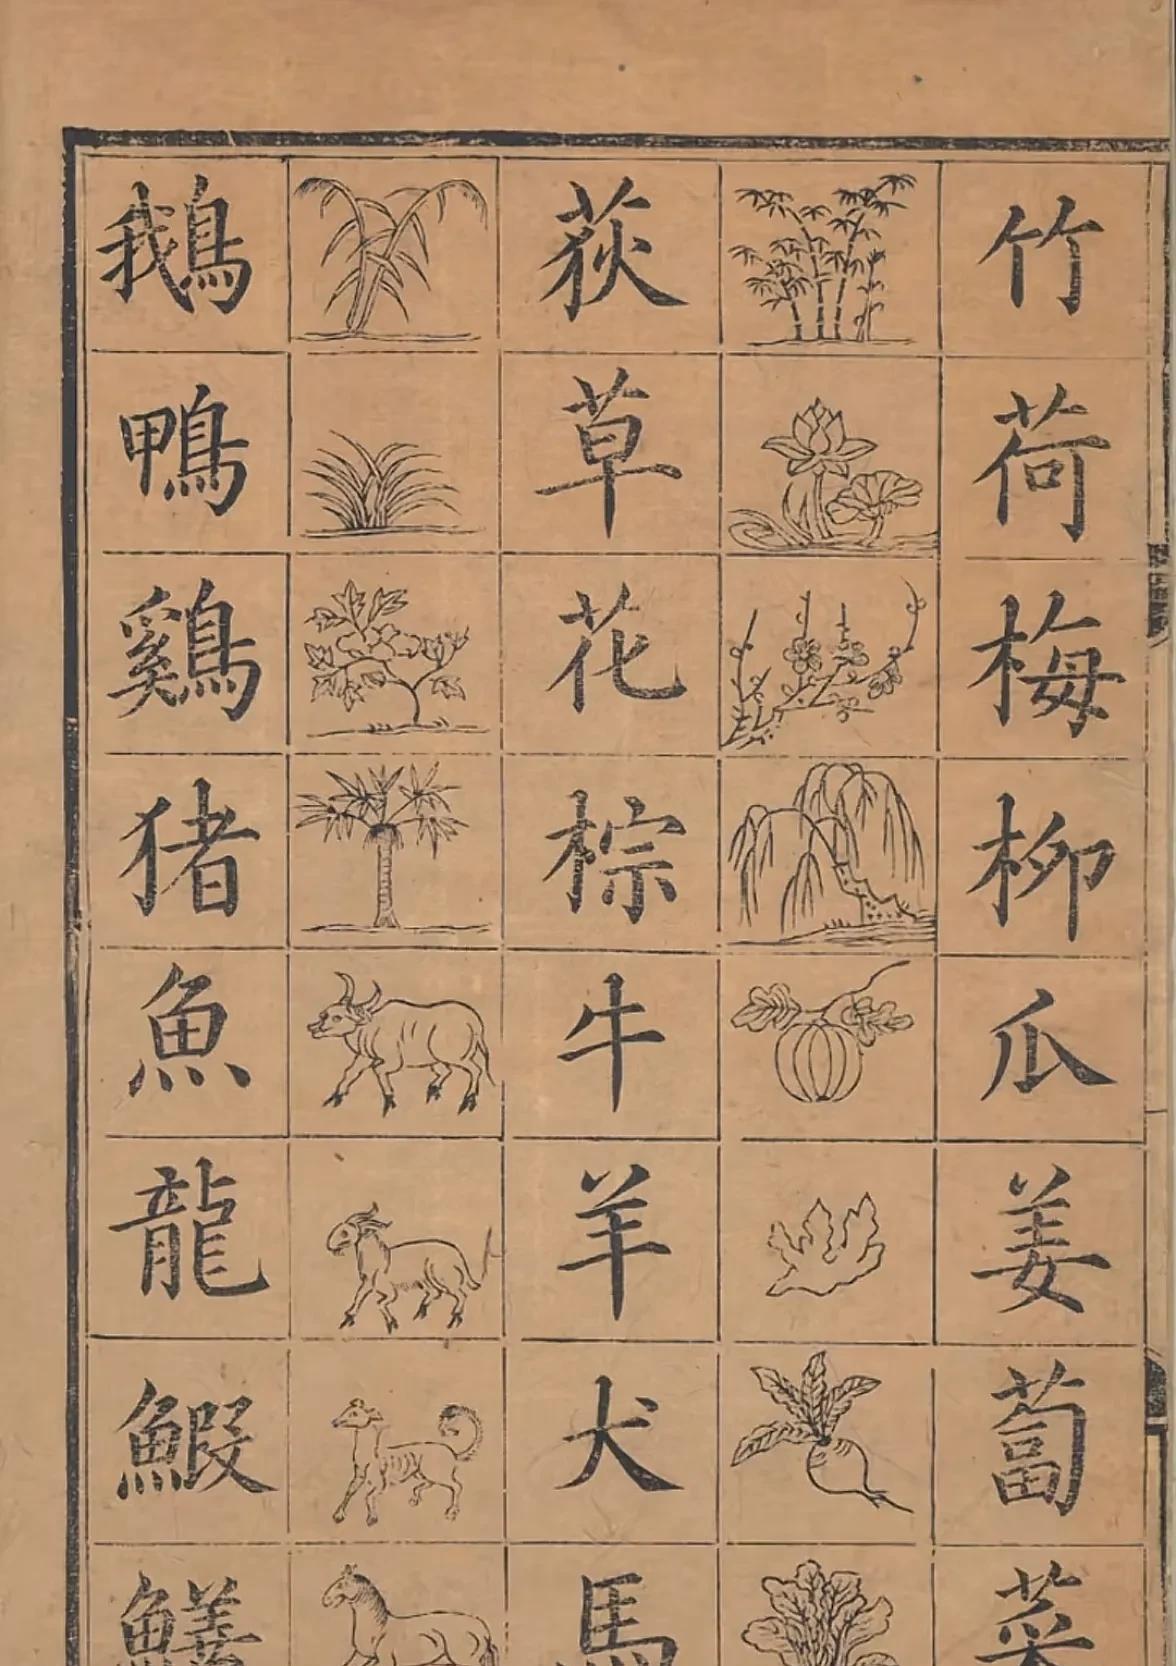 竹荷梅柳瓜姜蔔菜
荻草花棕牛羊犬馬
鵝鴨鷄猪魚龍鰕鱔